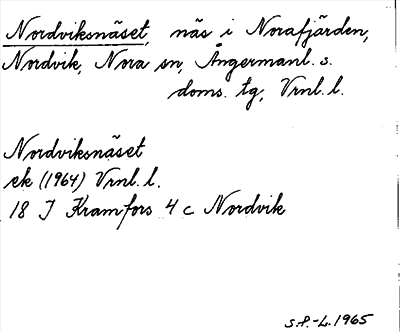 Nordviksnäset, näs i Norafjärden,
Nordvik, Nora sn, Ångermanl. s.
doms. tg, Vrnl. l.
Nordviksnäset
ek (1964) Vrnl. l.
18 J Kramfors 4 c Nordvik
S.P.-L. 1965